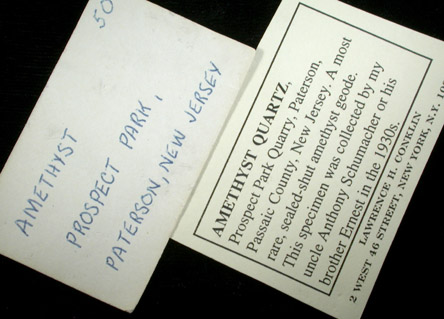 50
AMETHYST
PROSPECT PARK,
PATERSON, NEW JERSEY
AMETHYST QUARTZ,
Prospect Park Quarry, Paterson,
Passaic County, New Jersey. A most
rare, sealed-shut amethyst geode.
This specimen was collected by my
uncle Anthony Schumacher or his
brother Ernest in the 1930s.
LAWRENCE H. CONKLIN
2 WEST 46 STREET, NEW YORK, N.Y.